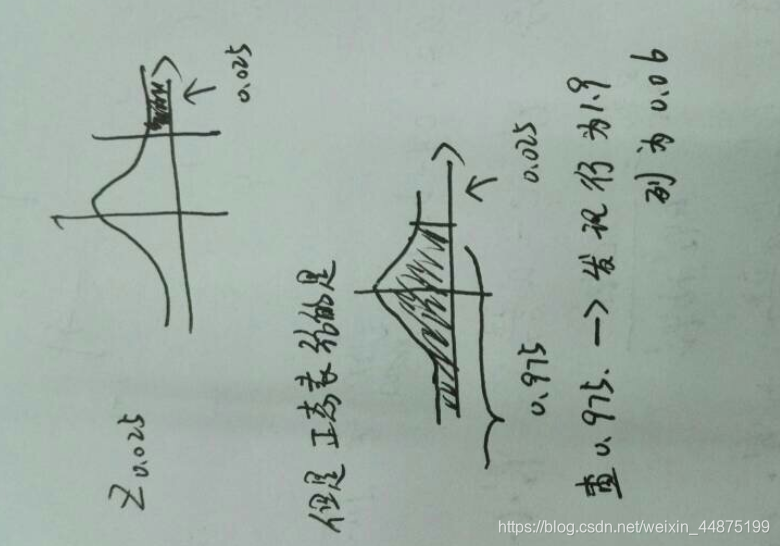 Z0.025
0.025
但是 正态表给的是
0.975
0.025
查0.975. → 发现行为1.9
列为0.06
https://blog.csdn.net/weixin_44875199